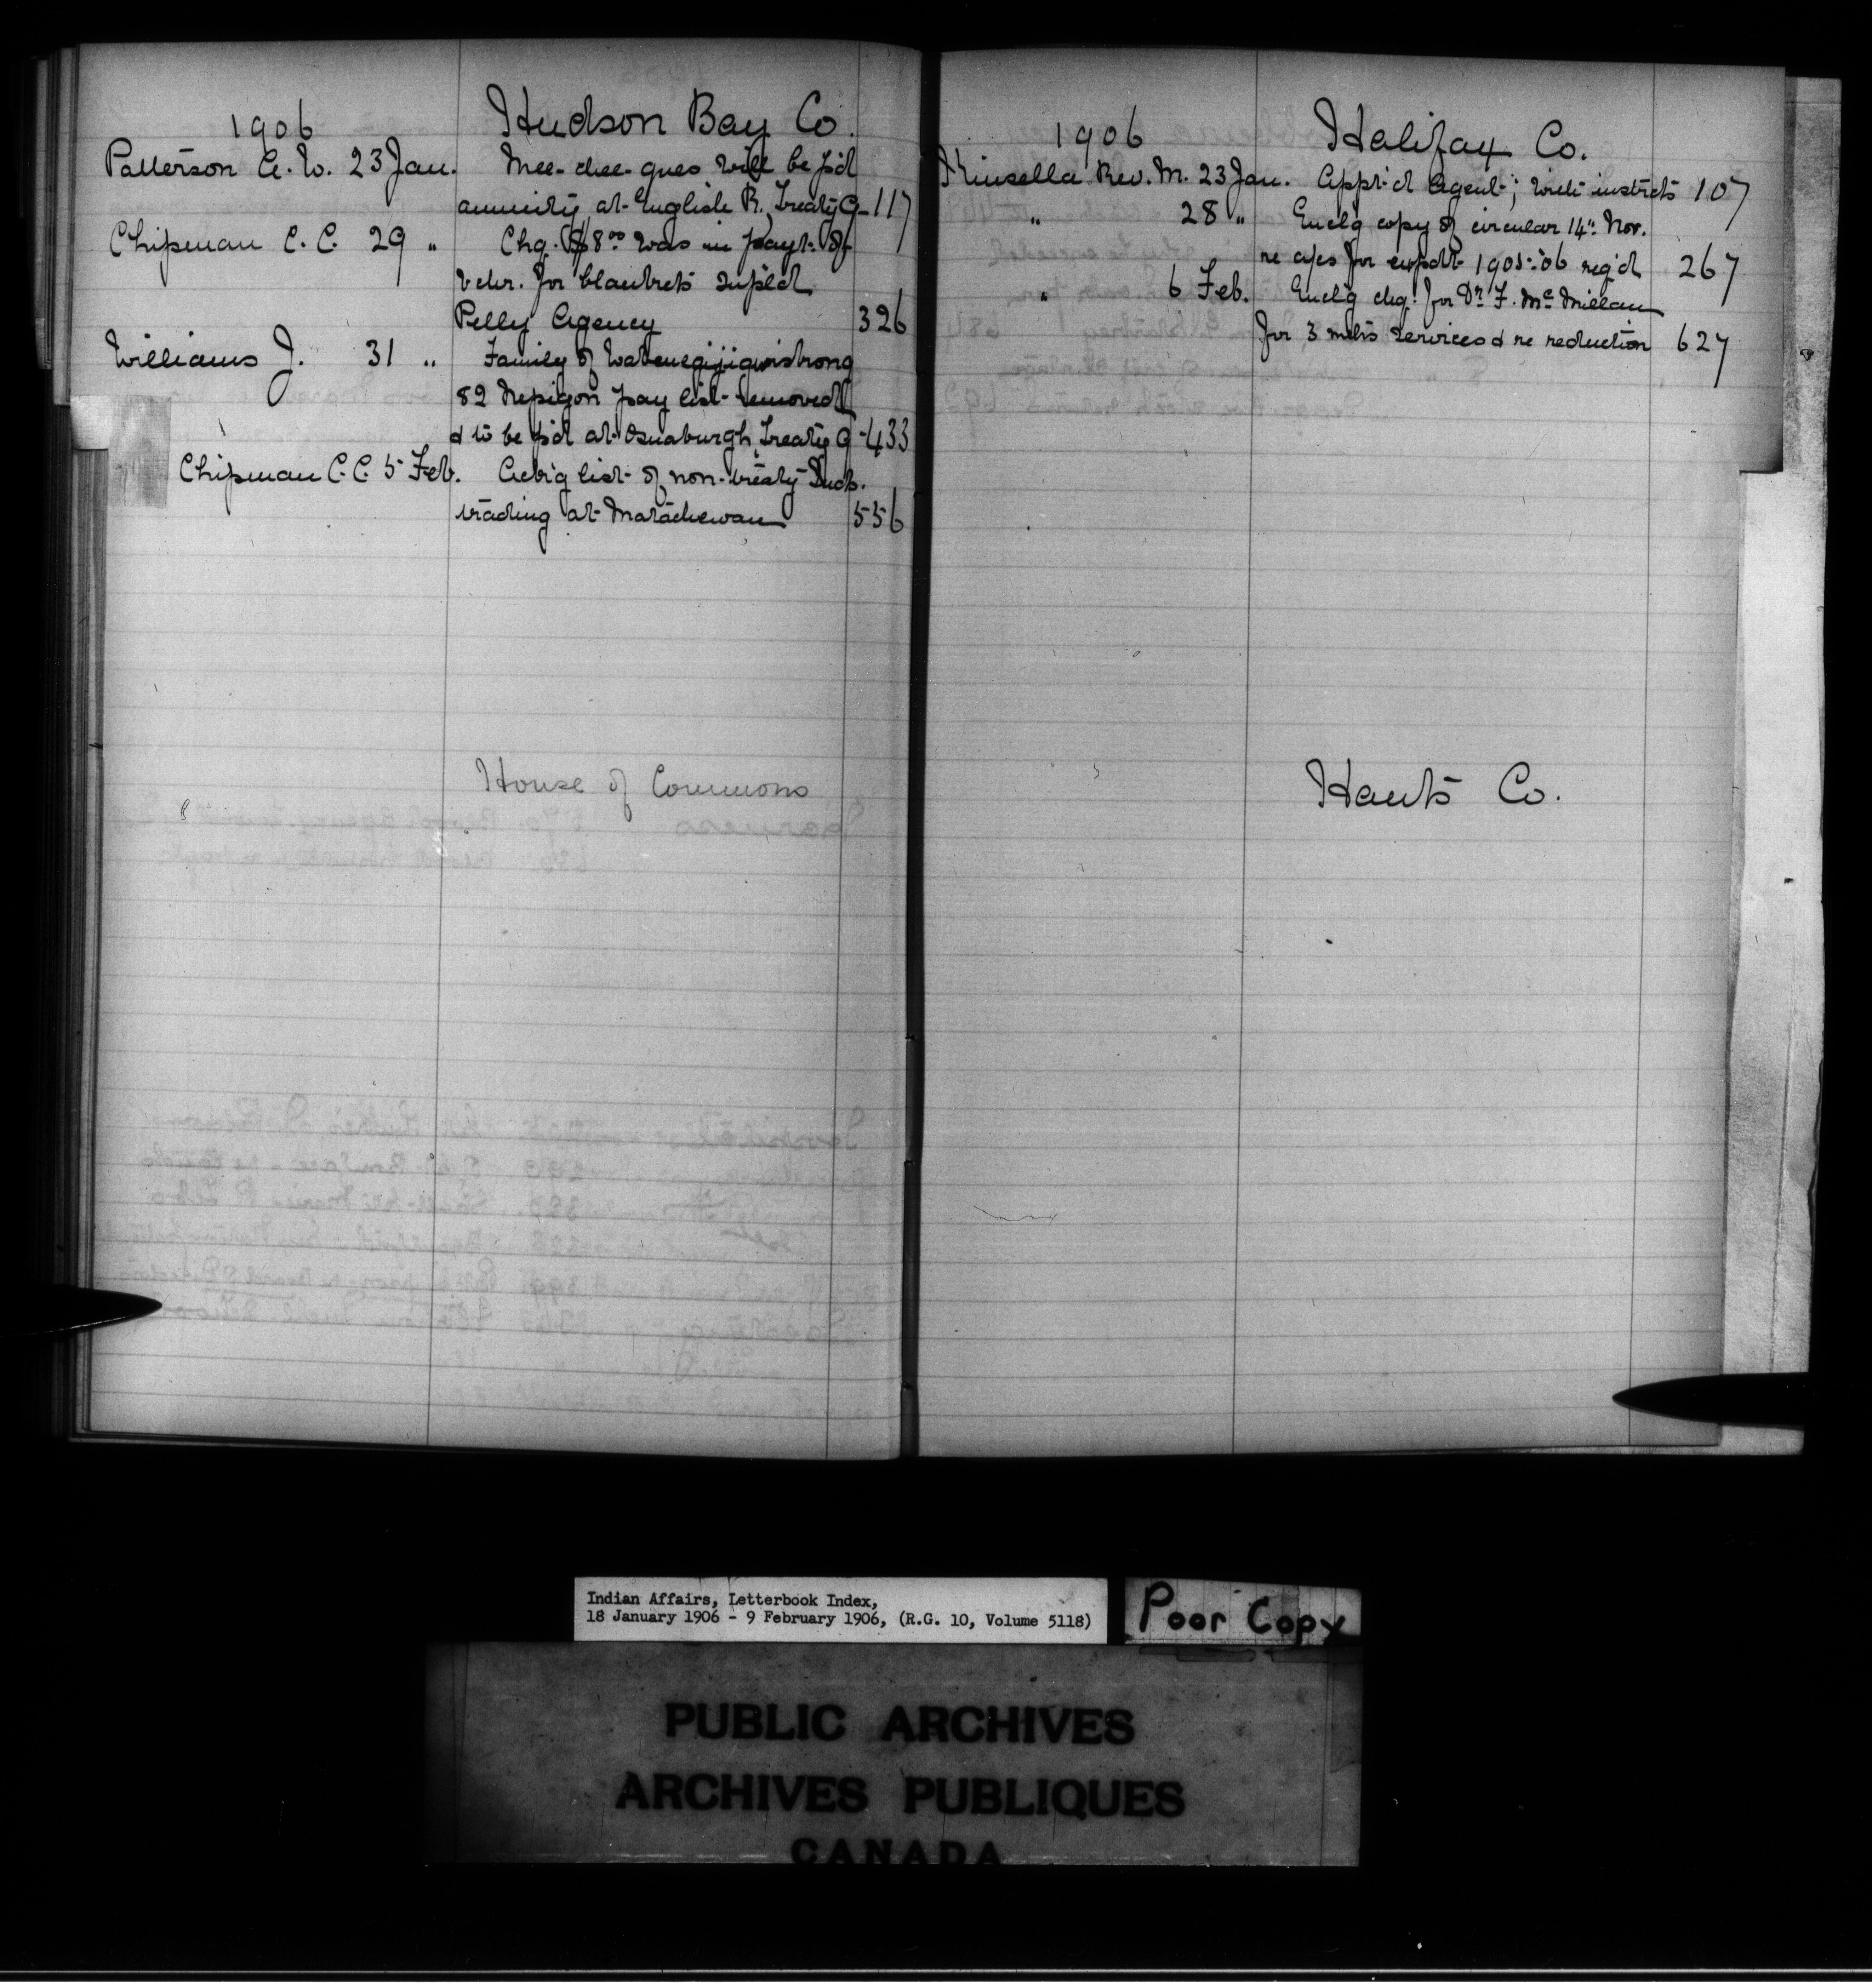 1906 Hudson Bay Co.
Patterson A. W. 23 Jan. Mee-chee-ques will be p'd
annuity at English R. Treaty 9-117
Chipman C. C. 29 " Chq. $8.00 was in payt. of
vchr. for blankets supl'd
Pelly Agency 326
Williams J. 31 " Family of
82 Nepigon pay list removed
& to be p'd at Osnaburgh, Treaty 9-433
Chipman C. C. 5 Feb. Ackn'g list of non-treaty Inds.
trading at Matachewan 556
House of Commons
1906 Halifax Co.
Kinsella Rev. M. 23 Jan. App't'd Agent; with instrcts 107
" 28 " Encl'g copy of circular 14" Nov.
re a/cs for expdt. 1905-'06 req'd 267
" 6 Feb. Encl'g chq. for Dr. F. McMillan
for 3 mths services & re reduction 627
Hants Co.
Indian Affairs, Letterbook Index,
18 January 1906 - 9 February 1906, (R.G. 10, Volume 5118)
Poor Copy
PUBLIC ARCHIVES
ARCHIVES PUBLIQUES
CANADA